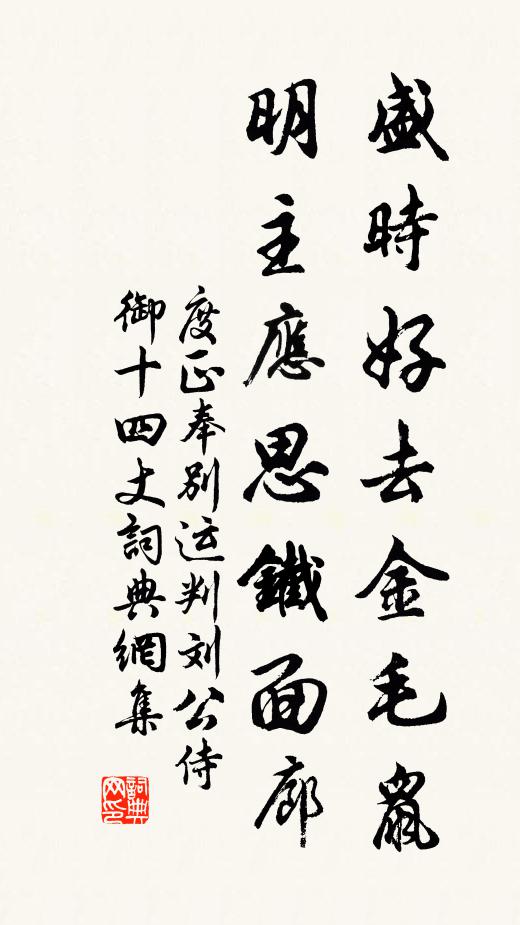 盛時好去金毛鼠
明主應思鐵面廊
度正奉別运判刘公侍
御十四丈詞典網集
詞典
网印